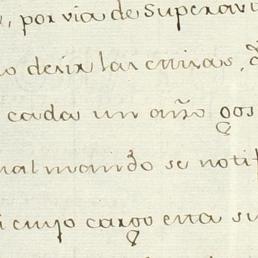 , por via de Superavi
o decir las misas,
cada un año
mal mando se notif
i cuyo cargo esta su